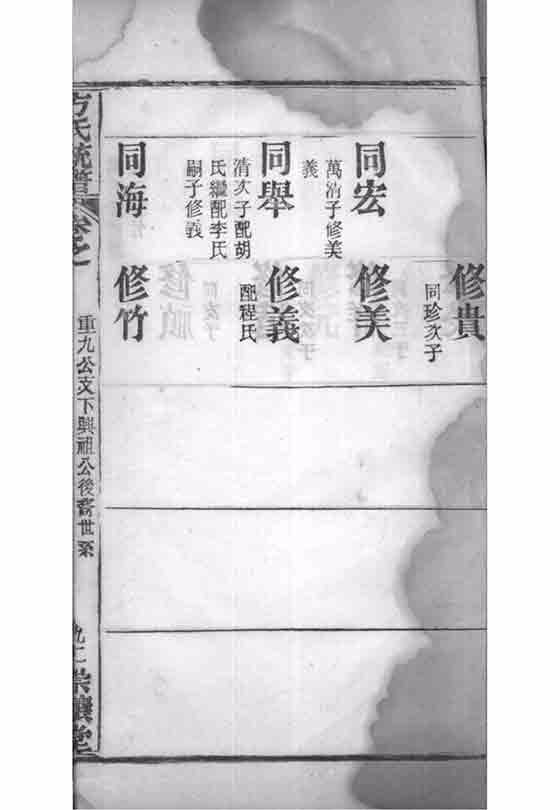 修貴
同珍次子
同宏
萬清子修美
義
修美
同舉
清次子配胡
氏繼配李氏
嗣子修義
修義
配程氏
同海
修竹
重九公支下興祖公後裔世系